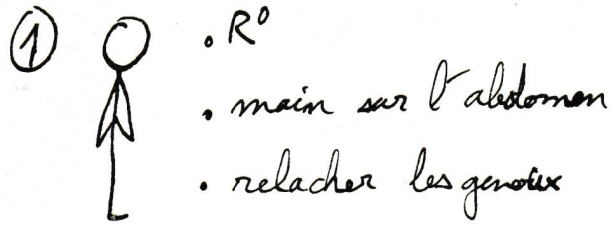 ① . R°
. main sur l'abdomen
. relacher les genoux